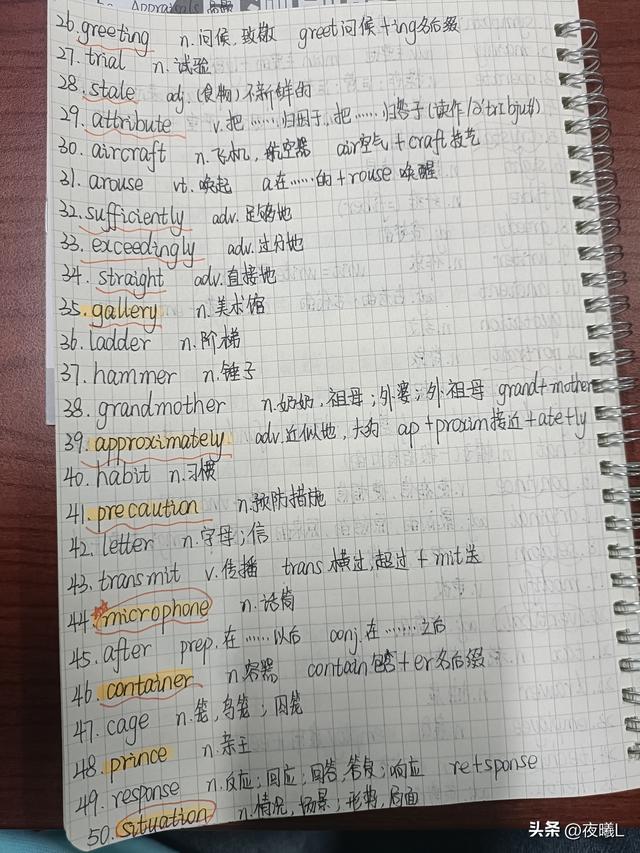 Appraisals
26. greeting n. 问候, 致敬 greet问候+ing名后缀
27. trial n. 试验
28. stale adj. (食物)不新鲜的
29. attribute v. 把……归因于, 把……归咎于(读作/ə'tribjut/)
30. aircraft n. 飞机, 航空器 air空气+craft技艺
31. arouse vt. 唤起 a在……的+rouse 唤醒
32. sufficiently adv. 足够地
33. exceedingly adv. 过分地
34. straight adv. 直接地
35. gallery n. 美术馆
36. ladder n. 阶梯
37. hammer n. 锤子
38. grandmother n. 奶奶, 祖母; 外婆; 外祖母 grand+mother
39. approximately adv. 近似地, 大约 ap+proxim接近+ate+ly
40. habit n. 习惯
41. precaution n. 预防措施
42. letter n. 字母; 信
43. transmit v. 传播 trans 横过, 超过+mit送
44. microphone n. 话筒
45. after prep. 在……以后 conj. 在……之后
46. container n. 容器 contain包含+er名后缀
47. cage n. 笼, 鸟笼; 囚笼
48. prince n. 亲王
49. response n. 反应; 回应; 回答, 答复; 响应 re+sponse
50. situation n. 情况, 场景; 形势, 局面
头条 @夜曦L